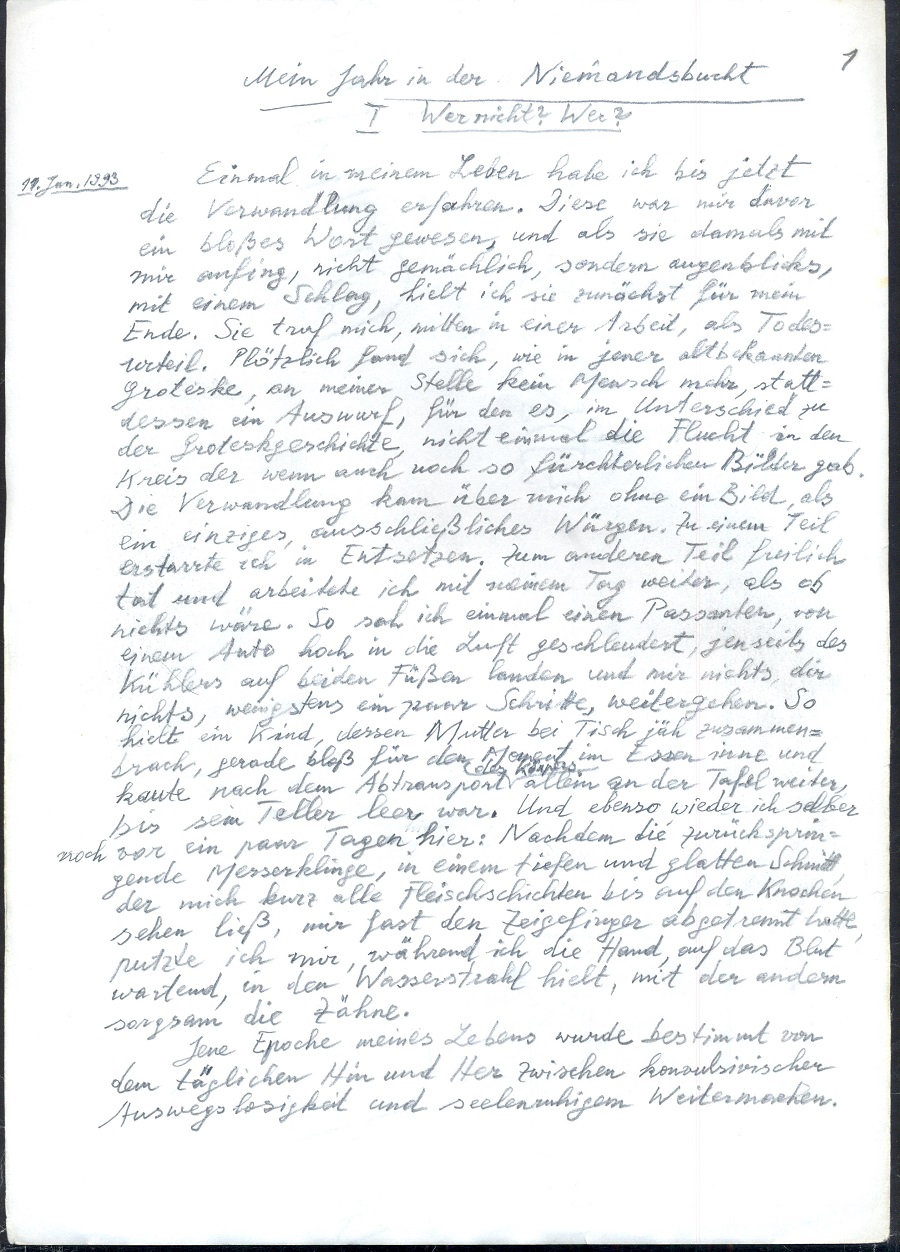 1
Mein Jahr in der Niemandsbucht
I Wer nicht? Wer?
11. Jan. 1993
Einmal in meinem Leben habe ich bis jetzt
die Verwandlung erfahren. Diese war mir davor
ein bloßes Wort gewesen, und als sie damals mit
mir anfing, nicht gemächlich, sondern augenblicks,
mit einem Schlag, hielt ich sie zunächst für mein
Ende. Sie traf mich, mitten in einer Arbeit, als Todes=
urteil. Plötzlich fand sich, wie in jener altbekannten
Groteske, an meiner Stelle kein Mensch mehr, statt=
dessen ein Auswurf, für den es, im Unterschied zu
der Groteskgeschichte, nicht einmal die Flucht in den
Kreis der wenn auch noch so fürchterlichen Bilder gab.
Die Verwandlung kam über mich ohne ein Bild, als
ein einziges, ausschließliches Würgen. Zu einem Teil
erstarrte ich in Entsetzen. Zum anderen Teil freilich
tat und arbeitete ich mit meinem Tag weiter, als ob
nichts wäre. So sah ich einmal einen Passanten, von
einem Auto hoch in die Luft geschleudert, jenseits des
Kühlers auf beiden Füßen landen und mir nichts, dir
nichts, wenigstens ein paar Schritte, weitergehen. So
hielt ein Kind, dessen Mutter bei Tisch jäh zusammen=
brach, gerade bloß für den Moment im Essen inne und
des Körpers
kaute nach dem Abtransport allein an der Tafel weiter,
bis sein Teller leer war. Und ebenso wieder ich selber
noch vor ein paar Tagen hier: Nachdem die zurücksprin=
gende Messerklinge, in einem tiefen und glatten Schnitt,
der mich kurz alle Fleischschichten bis auf den Knochen
sehen ließ, mir fast den Zeigefinger abgetrennt hatte,
putzte ich mir, während ich die Hand, auf das Blut
wartend, in den Wasserstrahl hielt, mit der andern
sorgsam die Zähne.
Jene Epoche meines Lebens wurde bestimmt von
dem täglichen Hin und Her zwischen konvulsivischer
Auswegslosigkeit und seelenruhigem Weitermachen.